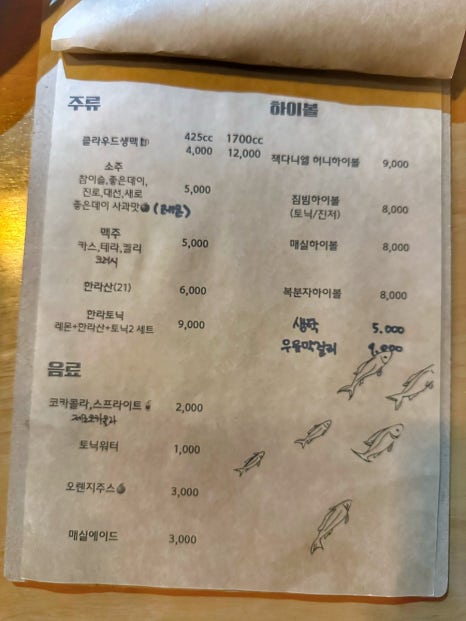 주류
클라우드생맥
425cc 1700cc
4,000 12,000
소주
참이슬,좋은데이,
진로,대선,새로
좋은데이 사과맛 (레몬)
5,000
맥주
카스,테라,켈리
크러시
5,000
한라산(21) 6,000
한라토닉
레몬+한라산+토닉2 세트
9,000
음료
코카콜라,스프라이트
제로
2,000
토닉워터 1,000
오렌지주스 3,000
매실에이드 3,000
하이볼
잭다니엘 허니하이볼 9,000
짐빔하이볼
(토닉/진저)
8,000
매실하이볼 8,000
복분자하이볼 8,000
생탁 5.000
막걸리